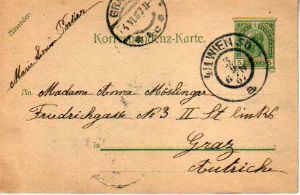 Absender:
Marie Louise
Korrespondenz-Karte.
4/1 WIEN 50
An Madame Anna Möslinger
Friedrichgasse No 3 II St. links
Graz
Autriche